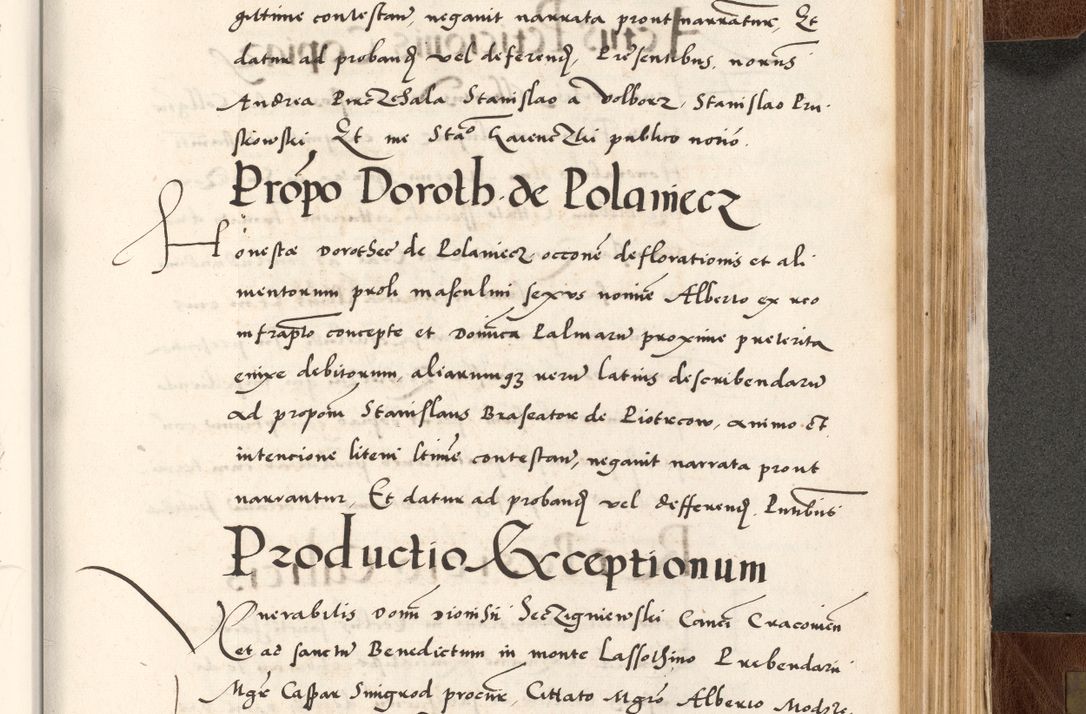 gittime contestan, negavit narrata prout narrantur, Et
datur ad proband vel deferend, Presentibus, nonns
Andrea Pirczchala Stanislao a Volborz, Stanislao Pru-
skowski, Et me Stao Gaienczki publico notio.
Propo Doroth. de Polaniecz
Honestæ Dorotheæ de Polaniecz, occone deflorationis et ali
mentorum proli masculini sexus nomine Alberto ex reo
infrapto concepte et Dominica Palmaru proxime preterita
enixe debitorum, aliarumqz reru latius describendaru
ad propom Stanislaus Braseator de Piotrcow, animo et
intencione litem ltime contestan, negavit narrata prout
narrantur, Et datur ad proband vel defferend, Pntibus
Productio Exceptionum
Venerabilis Domi Dionisii Seczigniewski Canci Cracovien
et ad sanctu Benedictum in monte Lassothino Prebendarii
Mgr Caspar Smigrod procur, Cittato Mgro Alberto Modrze